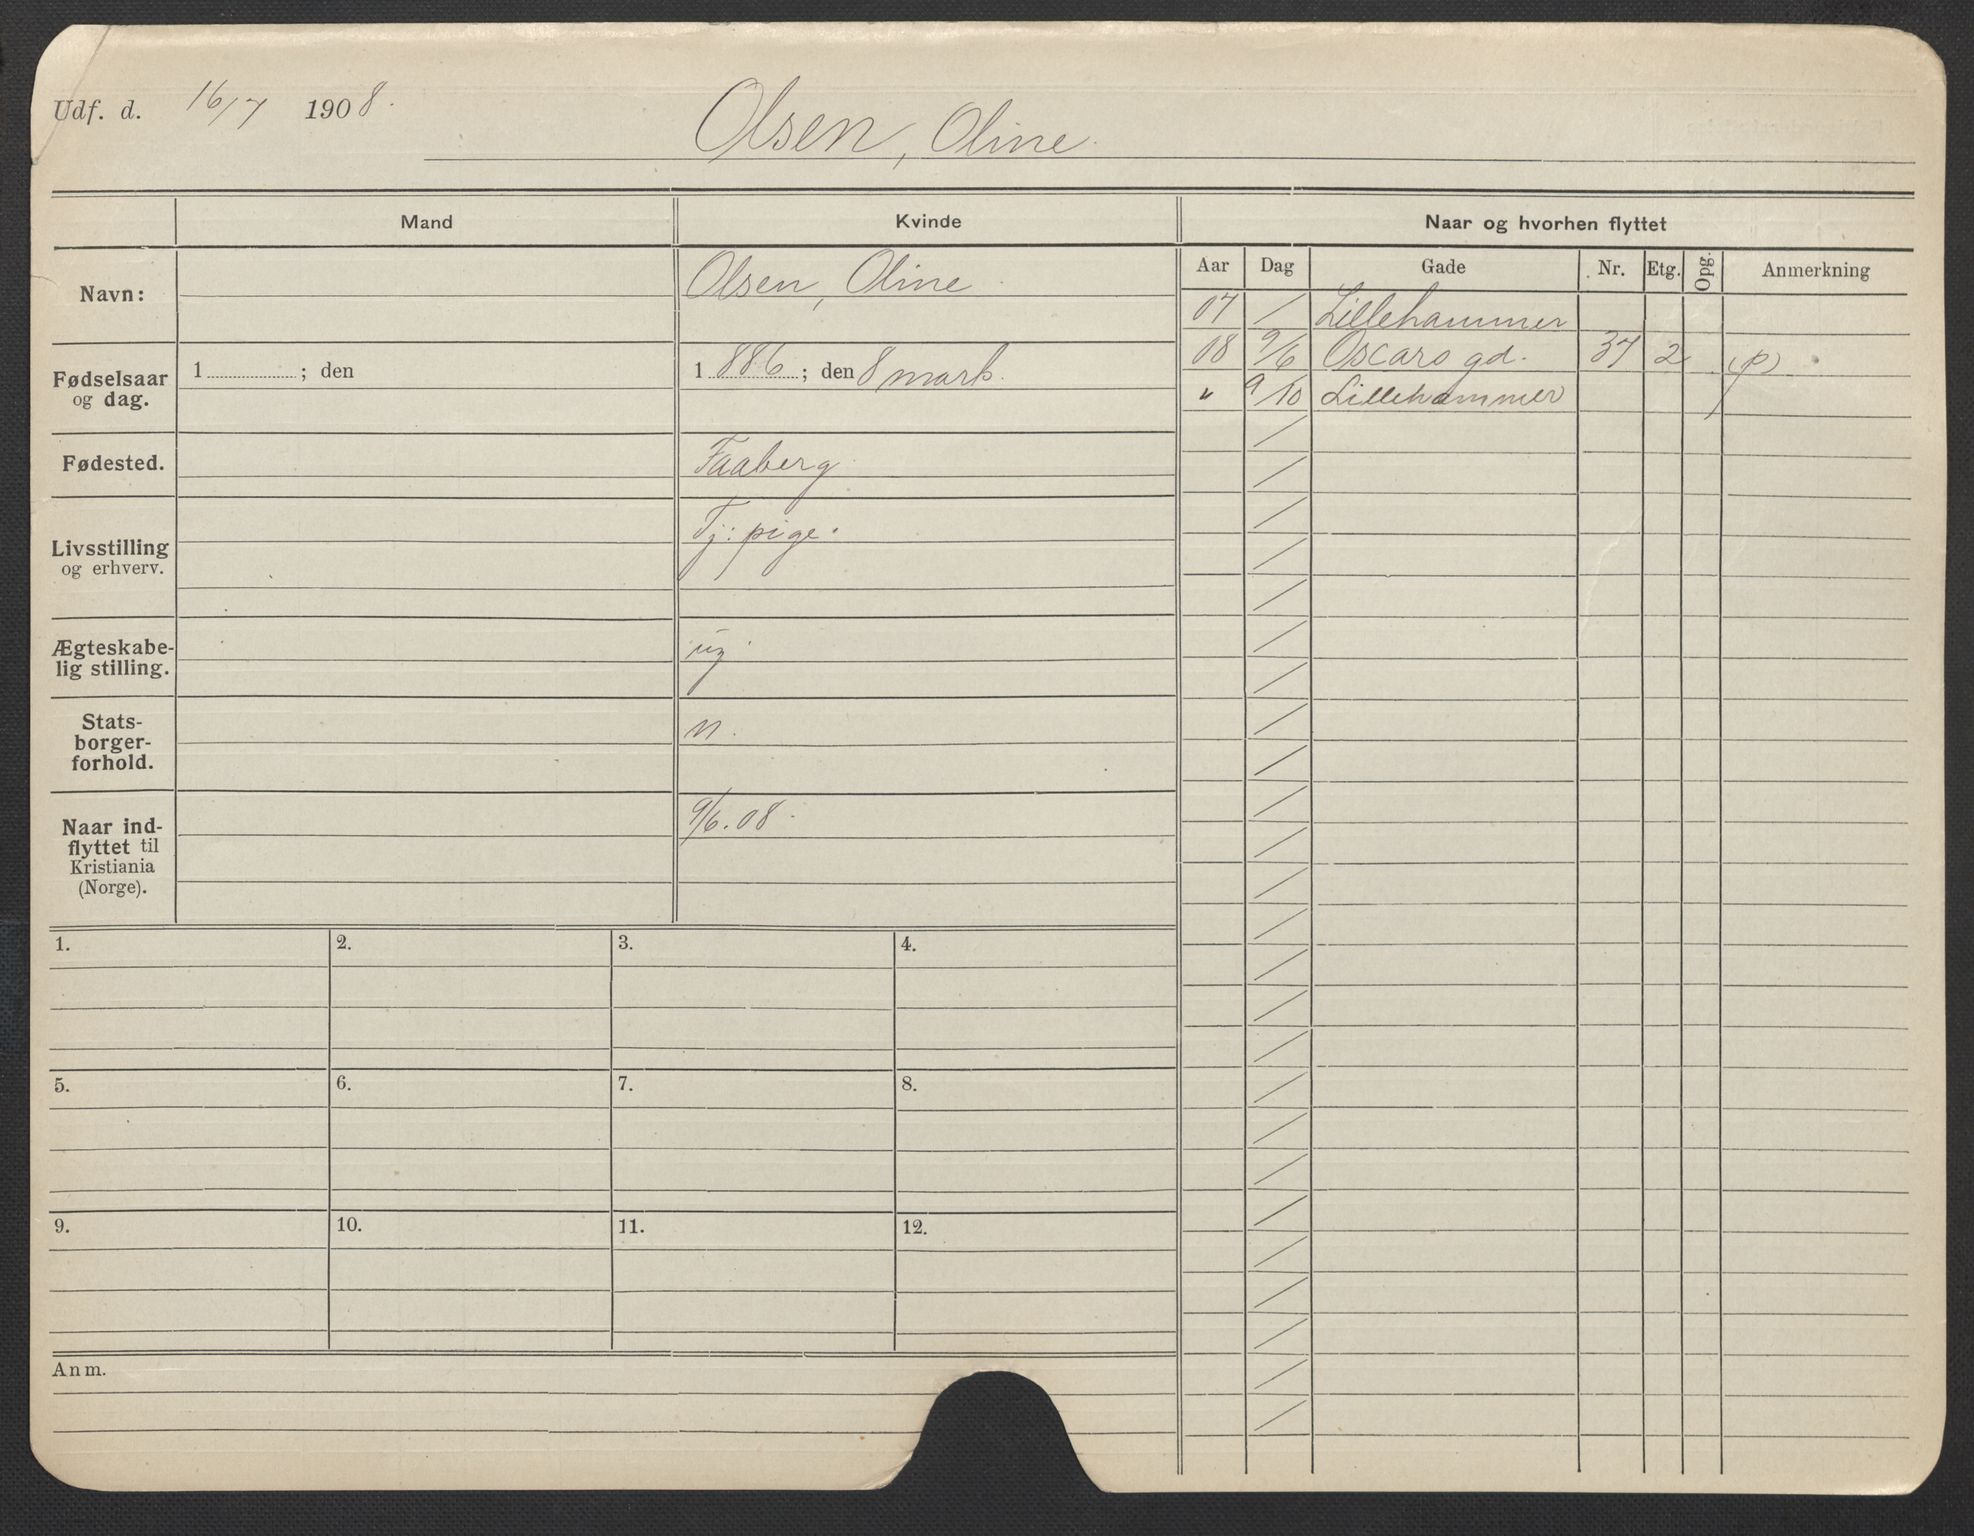 Udf. d. 16/7 1908.
Olsen, Oline.
Mand Kvinde Naar og hvorhen flyttet
Navn: Olsen, Oline
Fødselsaar og dag. 1 ; den 1886 ; den 8 marts.
Fødested. Faaberg
Livsstilling og erhverv. Tj: pige.
Ægteskabe-
lig stilling. ug
Stats-
borger-
forhold. n.
Naar ind-
flyttet til
Kristiania
(Norge). 9/6. 08.
Aar Dag Gade Nr. Etg. Opg. Anmerkning
07 / Lillehammer
08 9/6 Oscars gd. 37 2 (p)
" 9/10 Lillehammer
1. 2. 3. 4.
5. 6. 7. 8.
9. 10. 11. 12.
Anm.